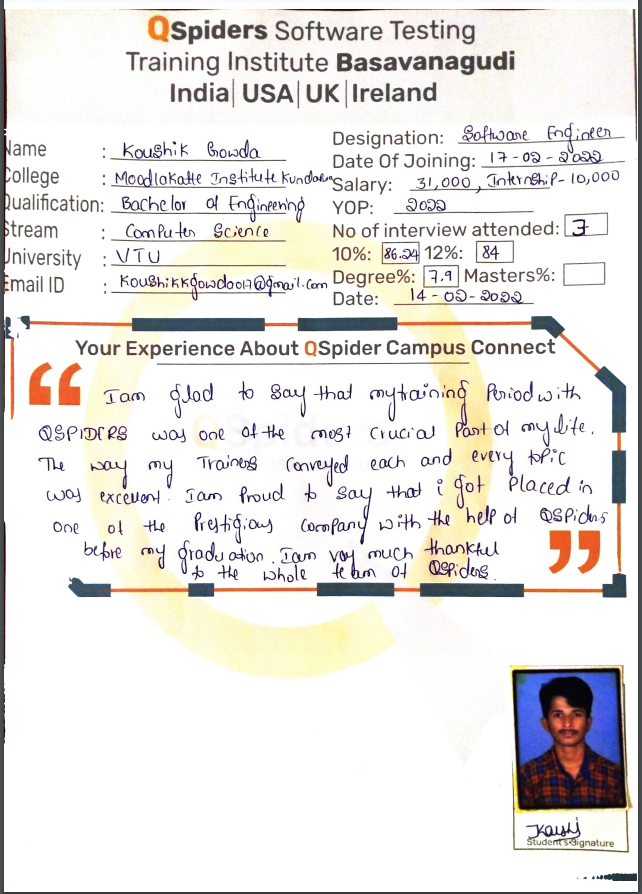 QSpiders Software Testing
Training Institute Basavanagudi
India| USA| UK |Ireland
Name : Koushik Gowda
College : Moodlakatte Institute Kundapura
Qualification: Bachelor of Engineering
Stream : Computer Science
University : VTU
Email ID : koushikkgowda017@gmail.com
Designation: Software Engineer
Date Of Joining: 17-02-2022
Salary: 31,000, Internship-10,000
YOP: 2022
No of interview attended: 3
10%: 86.24 12%: 84
Degree%: 7.9 Masters%:
Date: 14-02-2022
Your Experience About QSpider Campus Connect
I am glad to say that my training Period with
QSPIDERS was one of the most crucial Part of my life.
The way my Trainers conveyed each and every topic
was excellent. I am Proud to say that i got Placed in
one of the Prestigious company with the help of QSpiders
before my graduation. I am very much thankful
to the whole team of QSpiders.
Student's Signature